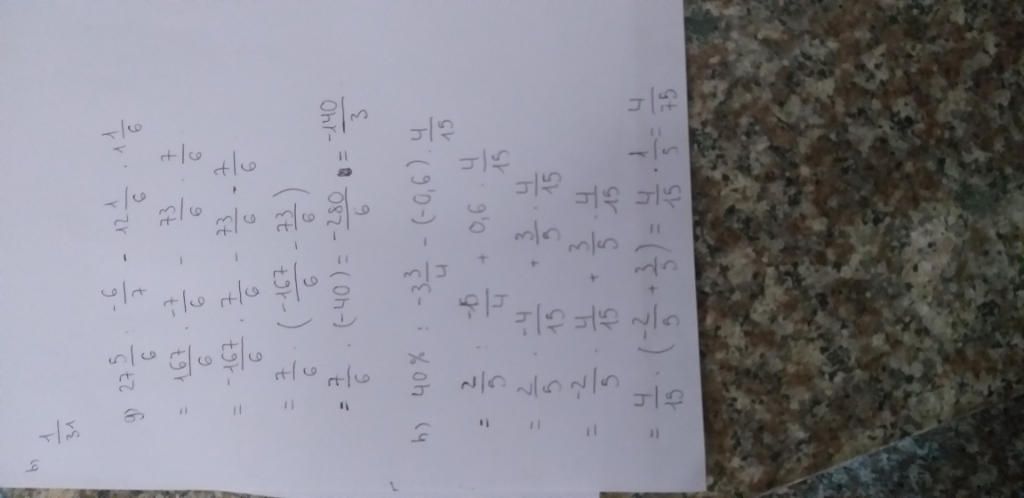 b) 1/31
g) 27 5/6 : -6/7 - 12 1/6 . 1 1/6
= 167/6 . -7/6 - 73/6 . 7/6
= -167/6 . 7/6 - 73/6 . 7/6
= 7/6 . (-167/6 - 73/6)
= 7/6 . (-40) = -280/6 = -140/3
h) 40% : -3 3/4 - (-0,6) . 4/15
= 2/5 : -15/4 + 0,6 . 4/15
= 2/5 . -4/15 + 3/5 . 4/15
= -2/5 . 4/15 + 3/5 . 4/15
= 4/15 . (-2/5 + 3/5) = 4/15 . 1/5 = 4/75